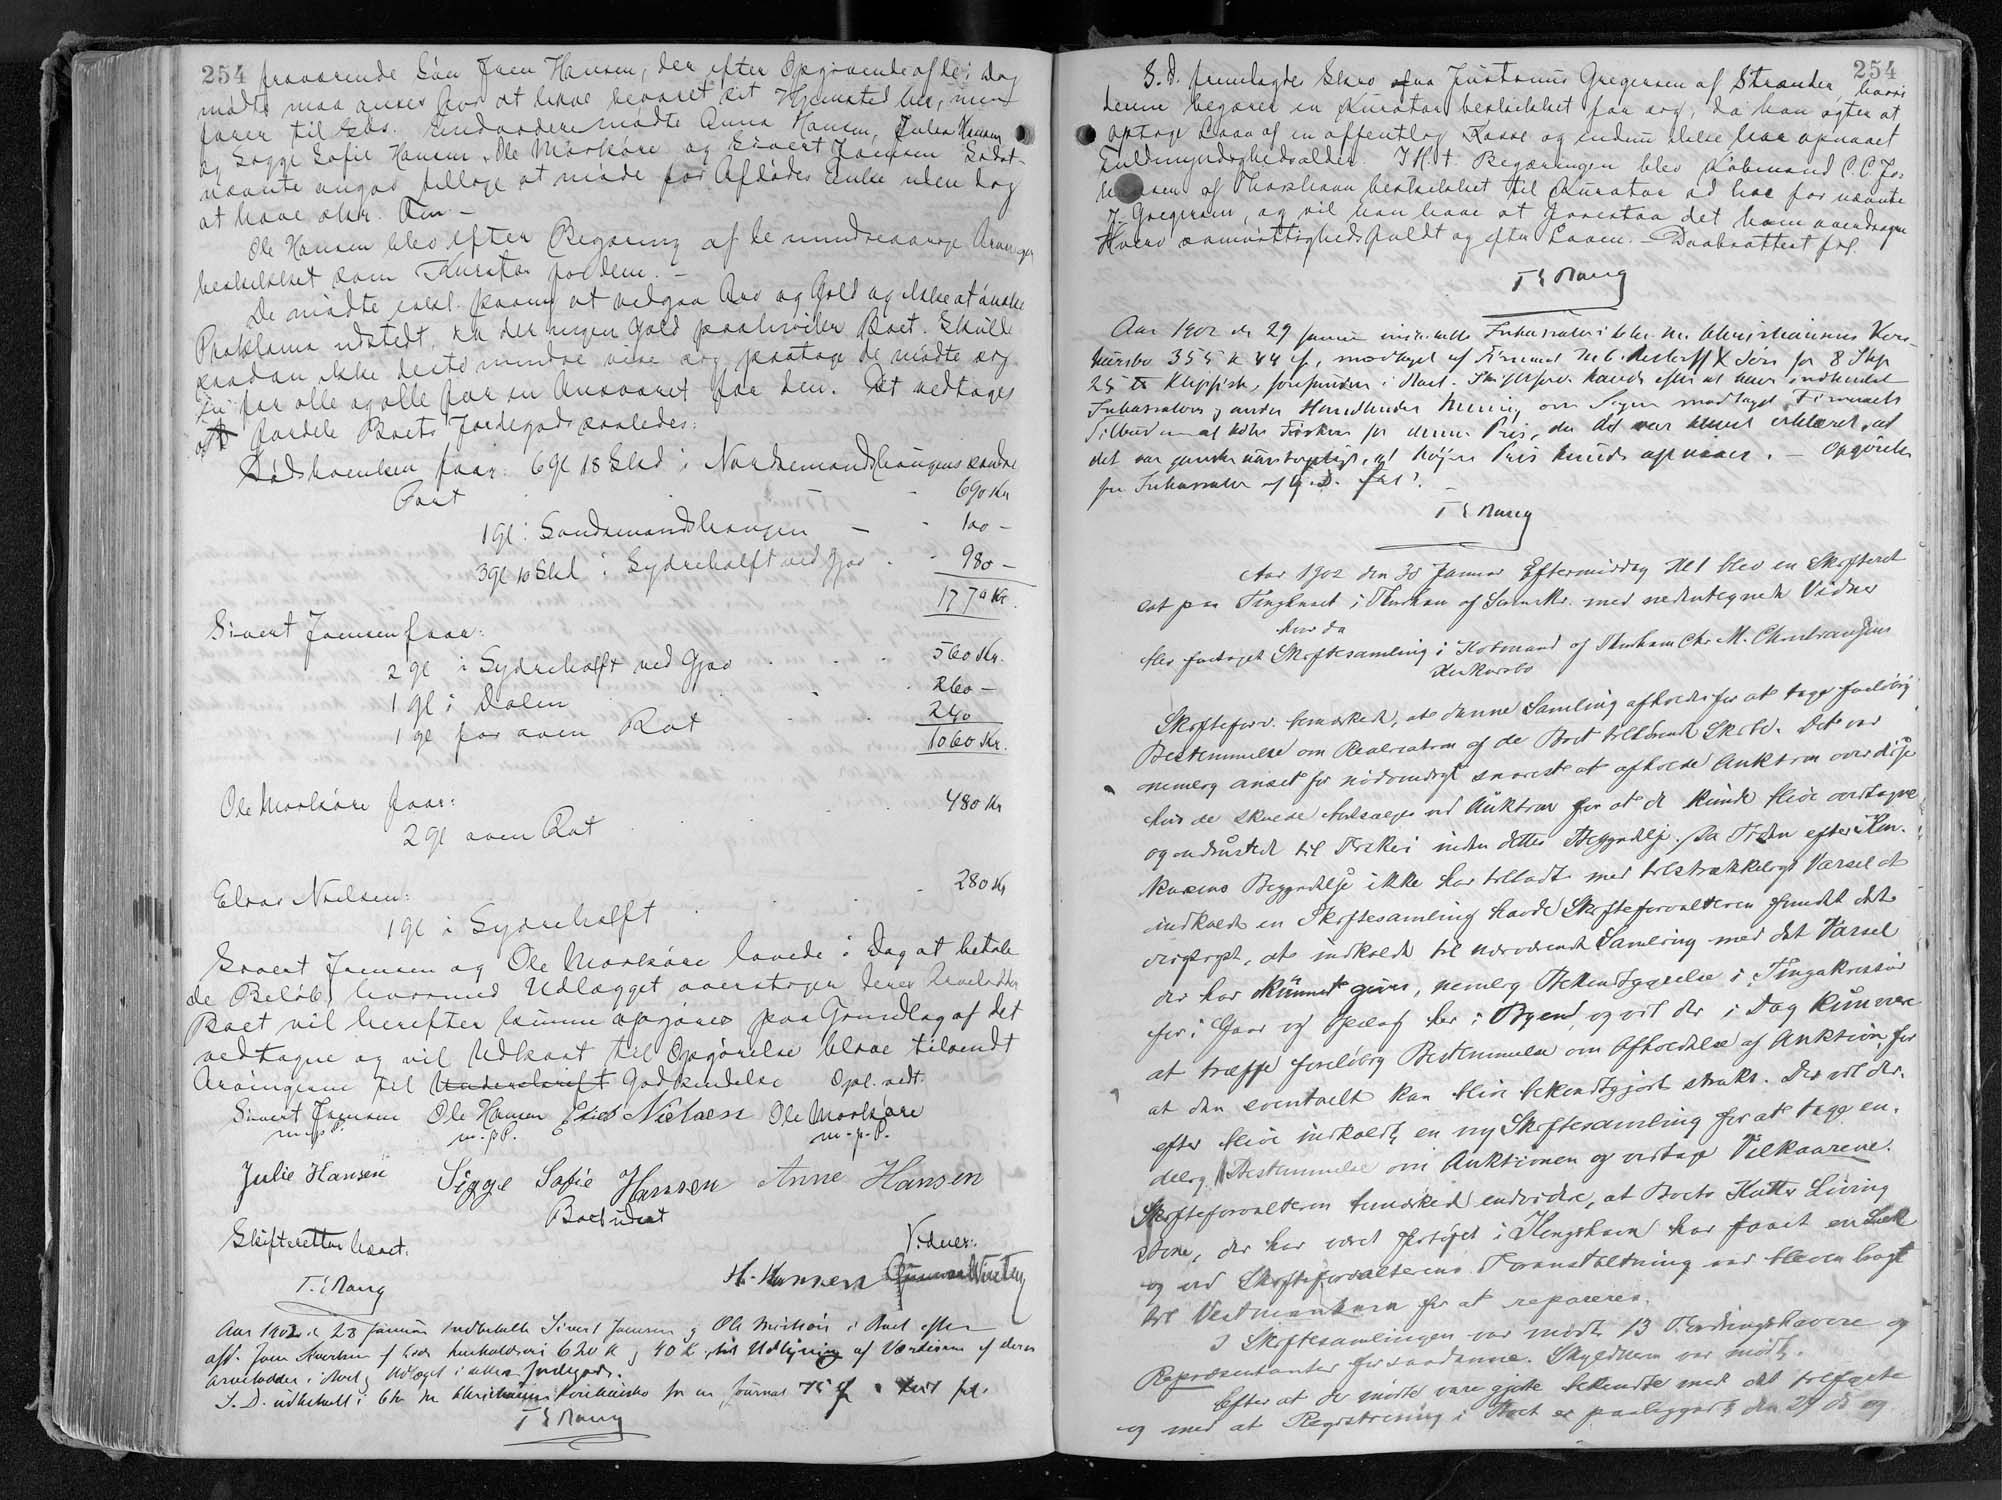 254
fraværende Søn Joen Hansen, der efter Opgivende af de i Dag
mødte maa anses for at have bevaret sit Hjemsted her, men
farer til Søs. Endvidere mødte Anna Hansen, Julia Hansen
og Sigge Sofie Hansen, Ole Morkøre og Sivert Joensen. Sidst-
nævnte angav tillige at møde for Afdødes Enke uden dog
at have skr. Fm. —
Ole Hansen blev efter Begæring af de mindreaarige Arvinger
beskikket som Kurator for dem. —
De mødte erkl. paany at vedgaa Arv og Gæld og ikke at ønske
Proklama udstedt, da der ingen Gæld paahviler Boet. Skulde
saadan ikke desto mindre vise sig, paatage de mødte sig
En for alle og alle for en Ansvaret for den. Det vedtages
at fordele Boets Jordegods saaledes:
faar: 6 gl 18 Skd i Nordremandshaugens søndre
Part - 690 Kr
1 gl i Søndremandshaugen — - 100 —
3 gl 10 Skd i Sydrehalft ved Gjov - 980 —
1770 Kr.
Sivert Joensen faar:
2 gl i Sydrehalft ved Gjov . . . 560 Kr.
1 gl i Dalen . . . 260 —
1 gl for oven Rot . . 240
1060 Kr.
Ole Morkøre faar:
2 gl oven Rot . . . 480 Kr
Elias Nielsen:
1 gl i Sydrehalft . . . 280 Kr
Sivert Joensen og Ole Morkøre lovede i Dag at betale
de Beløb, hvormed Udlægget overstiger deres Arvelodder
Boet vil herefter kunne opgøres paa Grundlag af det
vedtagne og vil Udkast til Opgørelse blive tilsendt
Arvingerne til Underskrift Godkendelse Opl. vedt.
Sivert Joensen Ole Hansen Elias Nielsen Ole Morkøre
m.p.P. m.p.P. m.p.P.
Julie Hansen Sigge Sofie Hansen Anne Hansen
Boet udsat
Skifteretten hævet. Vidner:
T. E. Mørup H. Hansen
Aar 1902 d. 28 Januar indbetalte Sivert Joensen og Ole Morkøre i Boet efter
afd. Joen 620 K og 40 K til Udligning af Værdierne af deres
Arvelodder i Boet og Udlæget i dettes Jordegods.
S. D. udbetalt i Chr M Christiansens Konkursbo for en Journal 75 Øre
T E Mørup
254
S. D. fremlagdes Skriv fra Justinus Gregersen af Strænder, hvori
denne begærer en Kurator beskikket for sig, da han agter at
optage Laan af en offentlig Kasse og endnu ikke har opnaaet
Fuldmyndighedsalder. I H. t. Begæringen blev Købmand C. C. Jo-
hansen af Thorshavn beskikket til Kurator ad hoc for nævnte
J. Gregersen, og vil han have at forestaa det ham overdragne
Hverv samvittighedsfuldt og efter Loven. — Daabsattest frl.
T E Mørup
Aar 1902 d. 29 Januar Inkassator i Chr. M. Christiansens Kon-
kursbo 355 K 44 Ø, modtaget af Firmaet M. C. Restorff & Søn for 8 Skp
25 ℔ Klipfisk, forefunden i Boet. Skifteforv. havde efter at have indhentet
Inkassators og andre Handlendes Mening om Sagen modtaget Firmaets
Tilbud om at købe Fisken for denne Pris, da det var blevet erklæret, at
det var ganske at højere Pris kunde opnaaes. — Opgørelse
fra Inkassator af G. D. frl.
T E Mørup
Aar 1902 den 30 Januar Eftermiddag Kl 1 blev en Skifteret
sat paa Tinghuset i Thorshavn af Sorenskr. med undertegnede Vidner
hvor da
blev foretaget Skiftesamling i Købmand af Thorshavn Chr. M. Christiansens
Konkursbo
Skifteforv. bemærkede, at denne Samling afholdes for at tage foreløbig
Bestemmelse om Realisation af de Boet tilhørende Skibe. Det var
nemlig anset for nødvendigt snarest at afholde Auktion over disse
hvis de skulde bortsælges ved Auktion for at de kunde blive overtagne
og udrustede til Fiskeri inden dettes Begyndelse. Da Tiden efter Kon-
kursens Begyndelse ikke har tilladt med tilstrækkeligt Varsel at
indkalde en Skiftesamling havde Skifteforvalteren fundet det
rigtigst, at indkalde til nærværende Samling med det Varsel
der har kunnet gives, nemlig Bekendtgørelse i Tingakrossur
for i Gaar og Opslag her i Byen, og vil der i Dag kun være
at træffe foreløbig Bestemmelse om Afholdelse af Auktion, for
at den eventuelt kan blive bekendtgjort straks. Der vil der-
efter blive indkaldt en ny Skiftesamling for at tage en-
delig Bestemmelse om Auktionen og vedtage Vilkaarene.
Skifteforvalteren bemærkede endvidere, at Boets Kutter Living
stone, der har været i Kongshavn har faaet en Læk
og ved Skifteforvalterens Foranstaltning var bleven bragt
til Vestmanhavn for at repareres.
I Skiftesamlingen var mødt 13 Fordringshavere og
Repræsentanter for saadanne. Skyldneren var mødt.
Efter at de mødte vare gjorte bekendte med det tilførte
og med at Registrering i Boet er paabegyndt den 29 ds og